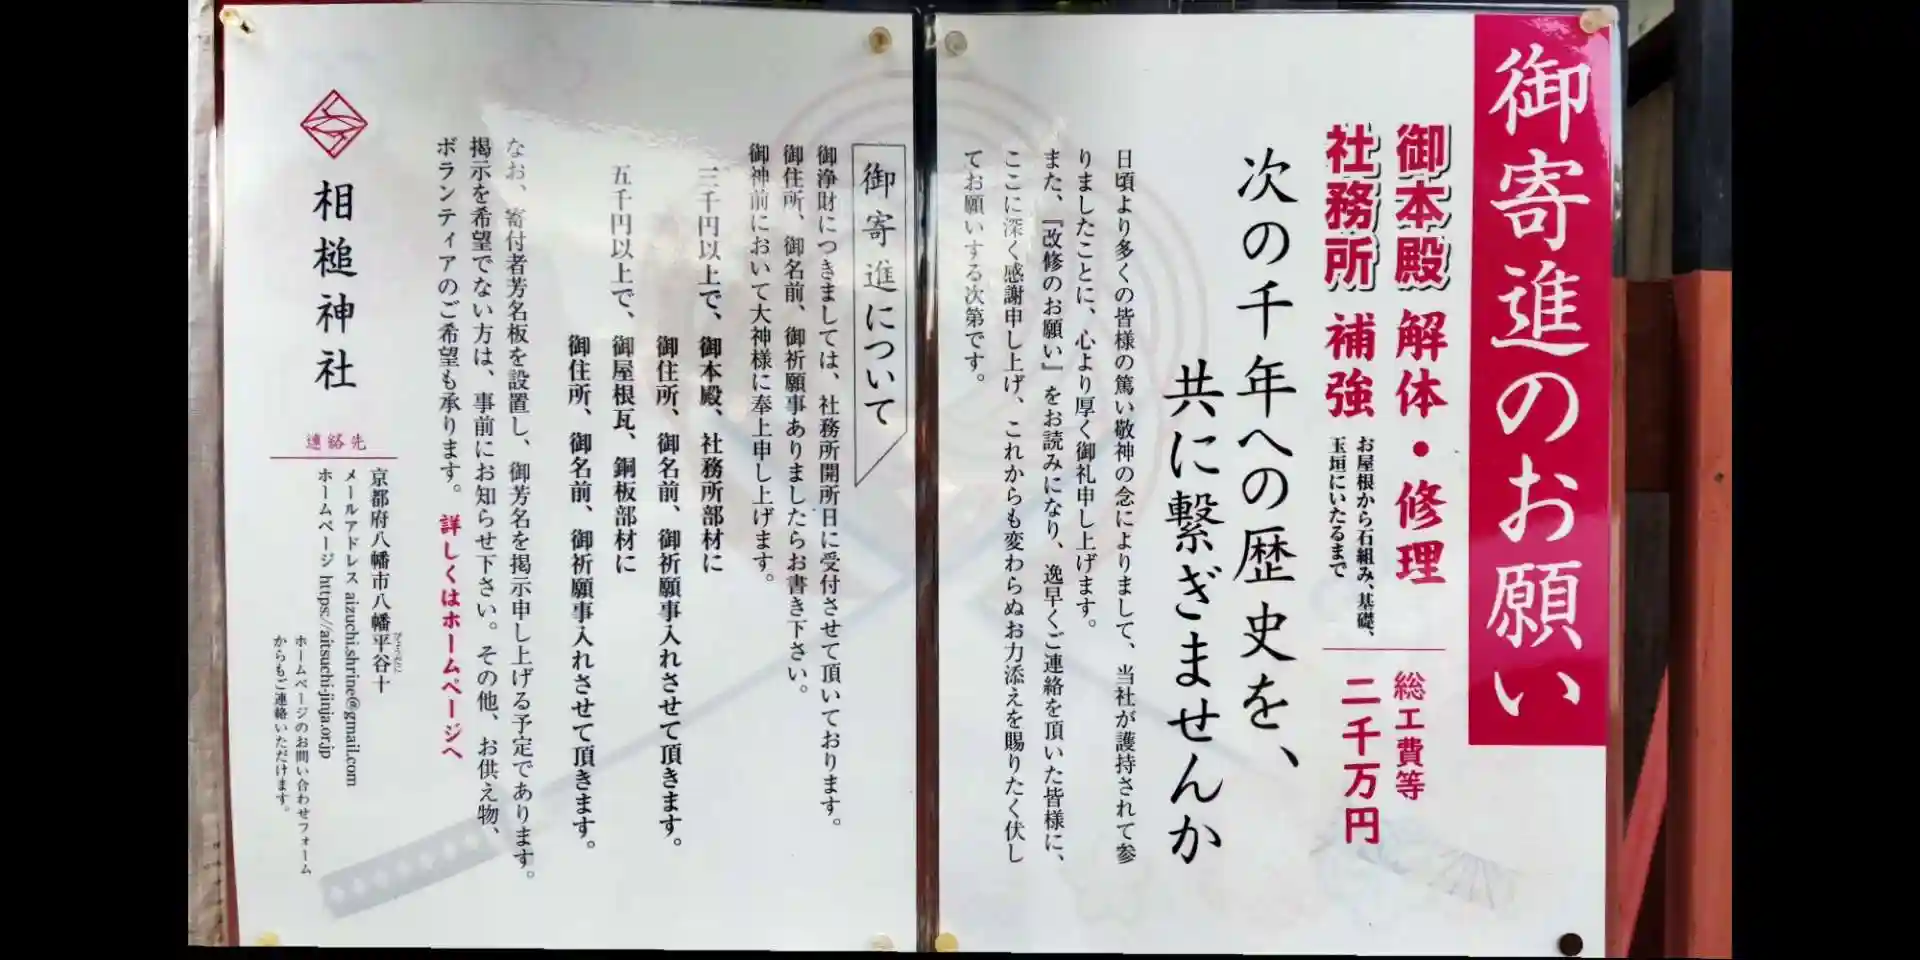 御寄進のお願い
御本殿 解体・修理
社務所 補強
お屋根から石組み、基礎、
玉垣にいたるまで
総工費等
二千万円
次の千年への歴史を、
共に繋ぎませんか
日頃より多くの皆様の篤い敬神の念によりまして、当社が護持されて参
りましたことに、心より厚く御礼申し上げます。
また、『改修のお願い』をお読みになり、逸早くご連絡を頂いた皆様に、
ここに深く感謝申し上げ、これからも変わらぬお力添えを賜りたく伏し
てお願いする次第です。
御寄進について
御浄財につきましては、社務所開所日に受付させて頂いております。
御住所、御名前、御祈願事ありましたらお書き下さい。
御神前において大神様に奉上申し上げます。
三千円以上で、御本殿、社務所部材に
御住所、御名前、御祈願事入れさせて頂きます。
五千円以上で、御屋根瓦、銅板部材に
御住所、御名前、御祈願事入れさせて頂きます。
なお、寄付者芳名板を設置し、御芳名を掲示申し上げる予定であります。
掲示を希望でない方は、事前にお知らせ下さい。その他、お供え物、
ボランティアのご希望も承ります。 詳しくはホームページへ
相槌神社
連絡先
京都府八幡市八幡平谷十
メールアドレス aizuchi.shrine@gmail.com
ホームページ https://aitsuchi-jinja.or.jp
ホームページのお問い合わせフォーム
からもご連絡いただけます。